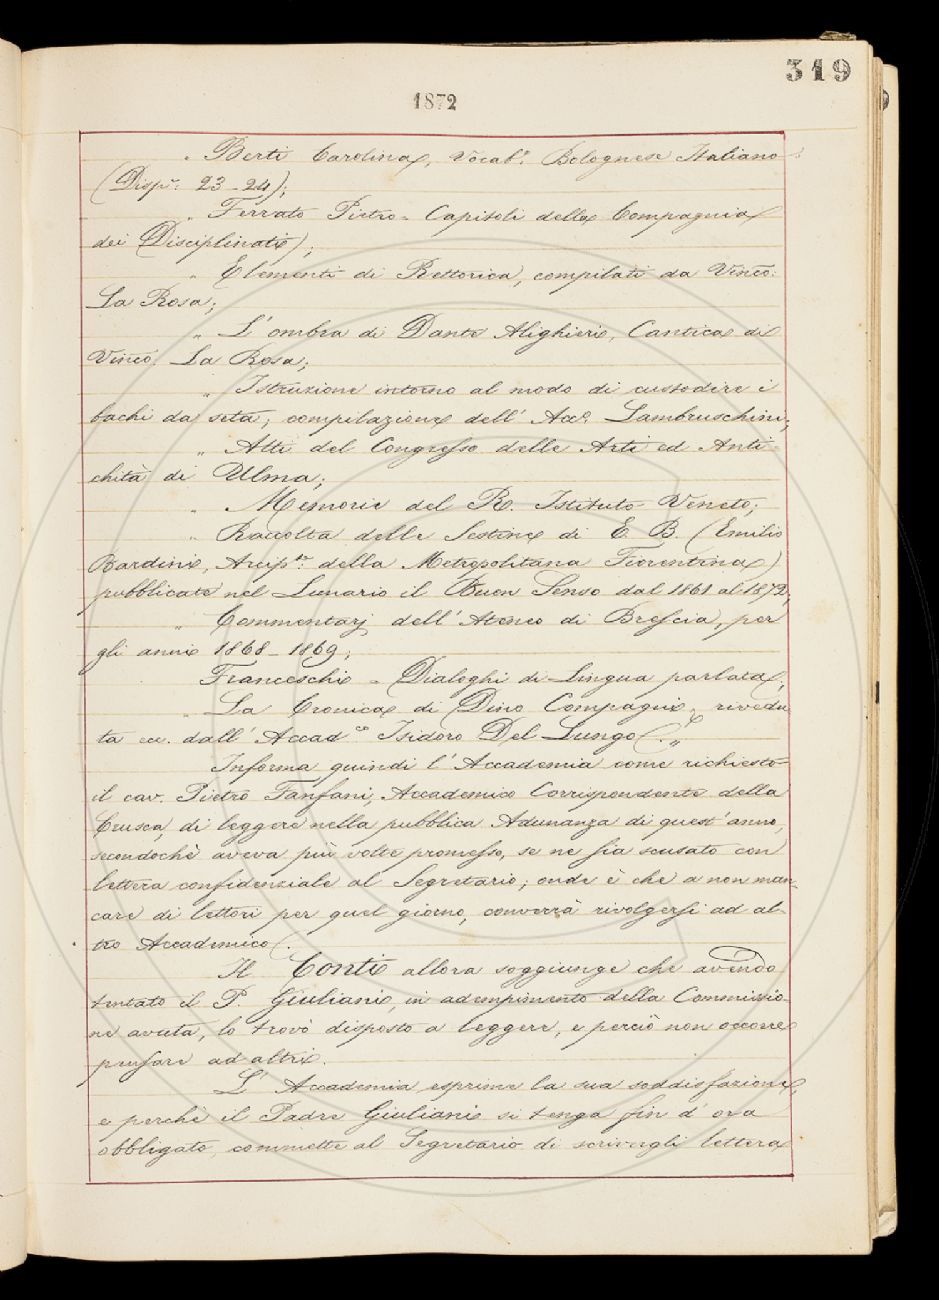 319
1872
„ Berti Carolina, Vocab.º Bolognese Italiano
(Disp.e 23-24);
„ Ferrato Pietro - Capitoli della Compagnia
dei Disciplinati);
„ Elementi di Rettorica, compilati da Vinco:
La Rosa;
„ L'ombra di Dante Alighieri, Cantica di
Vinco: La Rosa;
„ Istruzione intorno al modo di custodire i
bachi da seta, compilazione dell'Acc.º Lambruschini;
„ Atti del Congresso delle Arti ed Anti-
chità di Ulma;
„ Memorie del R. Istituto Veneto;
„ Raccolta delle Sestine di E. B. (Emilio
Bardini, Arcip.te della Metropolitana Fiorentina)
pubblicate nel Lunario il Buon Senso dal 1861 al 1872;
„ Commentarj dell'Ateneo di Brescia, per
gli anni 1868-1869;
Franceschi - Dialoghi di Lingua parlata;
„ La Cronica di Dino Compagni, rivedu
ta ecc. dall'Accad.co Isidoro Del Lungo. „
Informa quindi l'Accademia come richiesto
il cav. Pietro Fanfani, Accademico Corrispondente della
Crusca, di leggere nella pubblica Adunanza di quest'anno,
secondochè aveva più volte promesso, se ne sia scusato con
lettera confidenziale al Segretario; onde è che a non man-
care di lettori per quel giorno, converrà rivolgersi ad al-
tro Accademico.
Il Conti allora soggiunge che avendo
tentato il P. Giuliani, in adempimento della Commissio-
ne avuta, lo trovò disposto a leggere, e perciò non occorre
pensare ad altri.
L'Accademia esprime la sua soddisfazione,
e perchè il Padre Giuliani si tenga fin d'ora
obbligato, commette al Segretario di scrivergli lettera